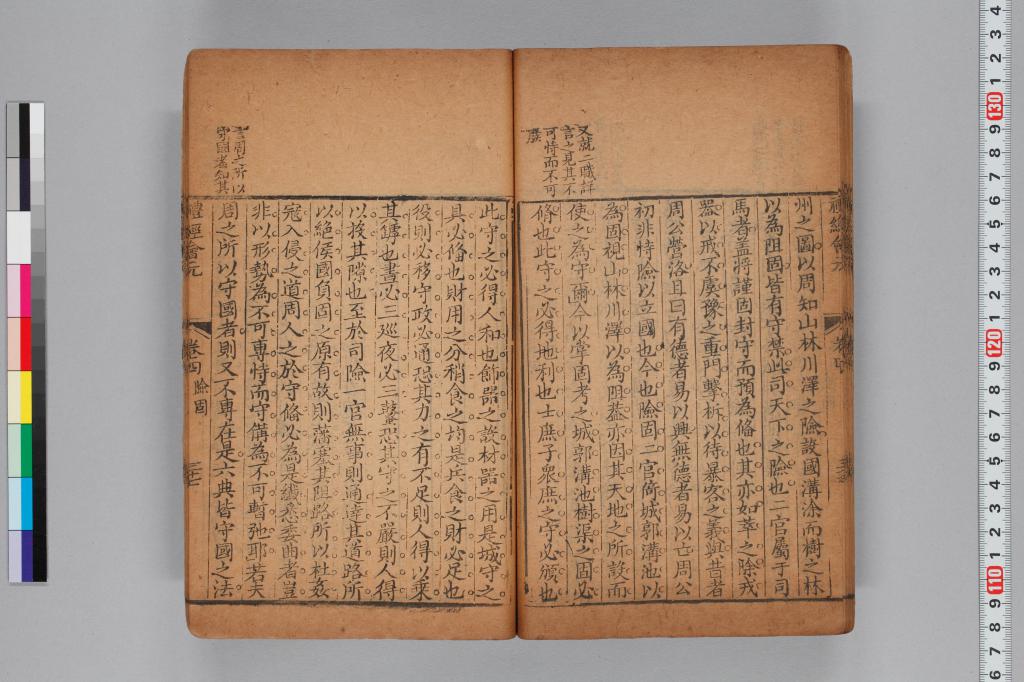 又就二職詳
言之見其不
可恃而不可
廢
州之圖以周知山林川澤之險設國溝涂而樹之林
以為阻固皆有守禁此司天下之險也二官屬于司
馬者盖將謹固封守而預為俻也其亦如萃之除戎
器以戒不虞豫之重門擊柝以待暴客之義與昔者
周公營洛且曰有德者易以興無德者易以亡周公
初非恃險以立國也今也險固二官脩城郭溝池以
為固視山林川澤以為阻蓋亦因其天地之所設而
使之為守爾今以掌固考之城郭溝池樹渠之固必
脩也此守之必得地利也士庶子衆庶之守必頒也
言周之所以
守國者知其
此守之必得人和也飾器之設材器之用是城守之
具必俻也財用之分稍食之均是兵食之財必足也
役則必移守政必通恐其力之有不足則人得以乘
其罅也晝必三廵夜必三鼜恐其守之不嚴則人得
以投其隙也至於司險一官無事則通達其道路所
以絶侯國負固之原有故則藩塞其阻路所以杜姦
寇入侵之道周人之於守俻必為是纖悉委曲者豈
非以形勢為不可專恃而守備為不可暫弛耶若夫
周之所以守國者則又不專在是六典皆守國之法
禮經會元
卷四
險固